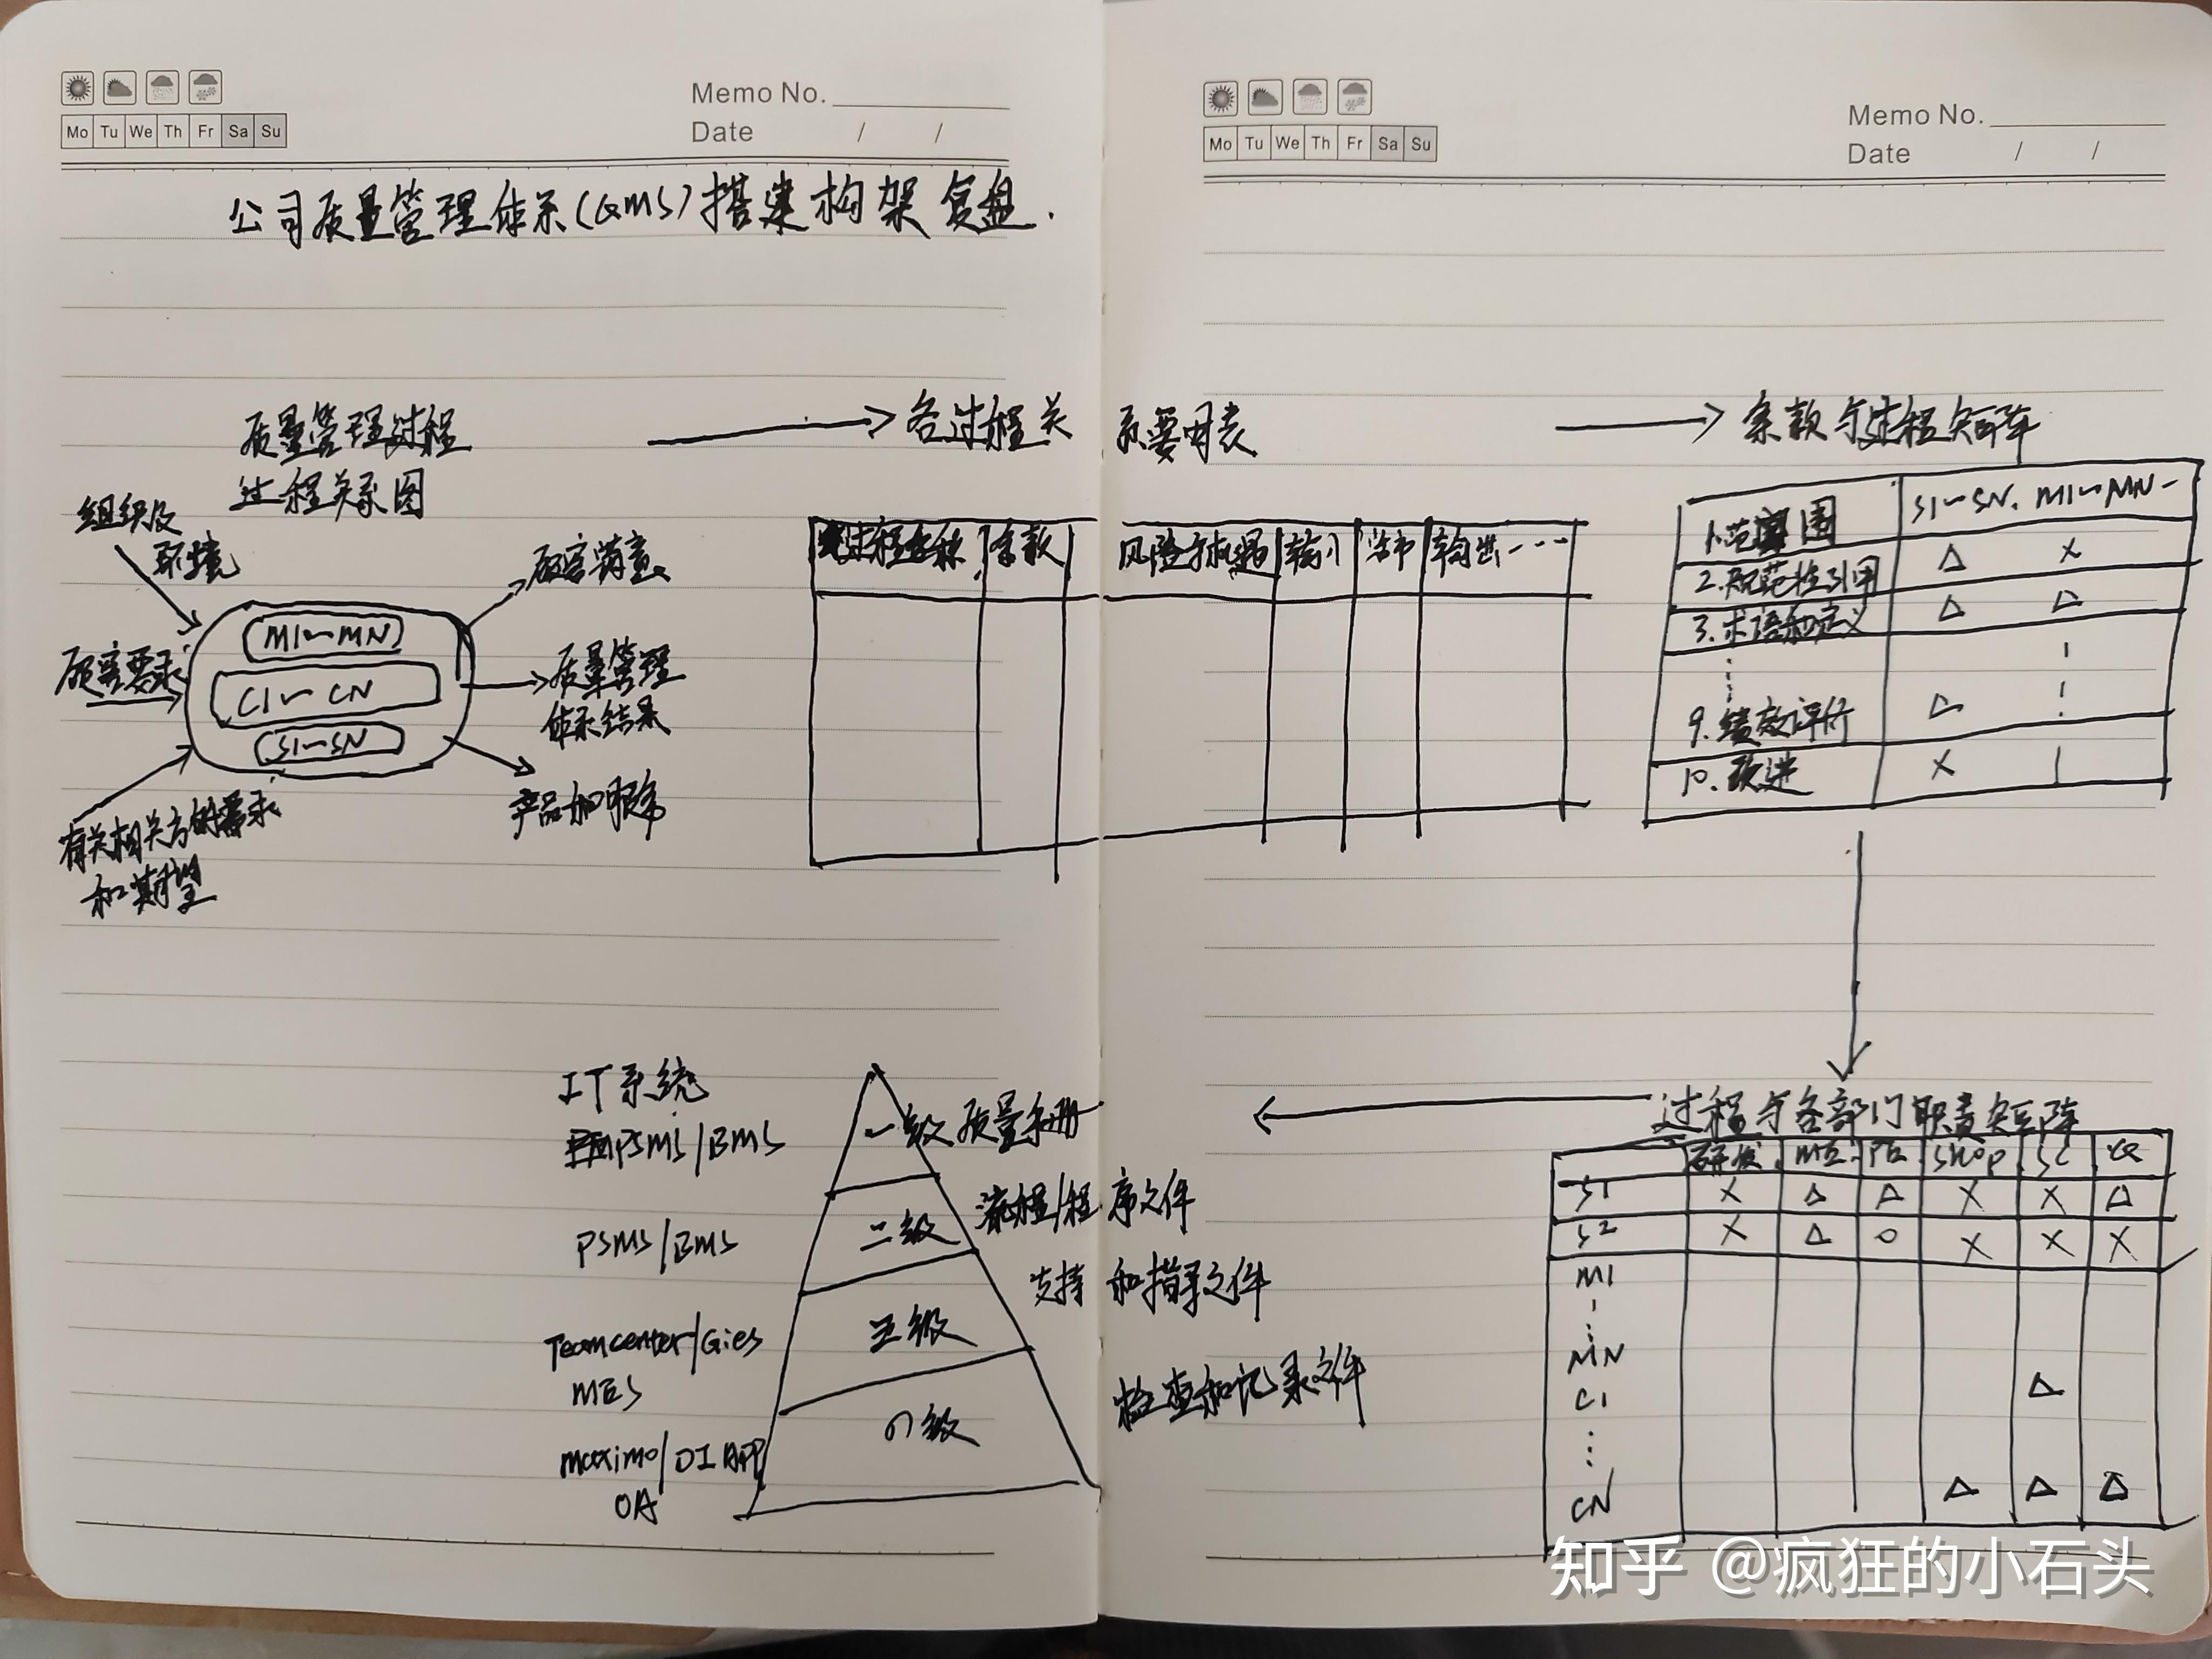 Memo No.
Mo Tu We Th Fr Sa Su
Date / /
公司质量管理体系(QMS)搭建构架复盘.
质量管理过程
过程关系图
组织及
环境
顾客要求
有关相关方的需求
和期望
M1~MN
C1~CN
S1~SN
顾客满意
质量管理
体系结果
产品和服务
IT系统
PSMS/BMS
PSMS/BMS
Teamcenter/Gies
MES
maximo/DI APP
OA
一级
二级
三级
四级
Memo No.
Mo Tu We Th Fr Sa Su
Date / /
各过程关系要因表
过程名称 条款 风险与机遇 输入 输出---
条款与过程矩阵
S1~SN. M1~MN-
1.范围
△ ×
2.规范性引用
△ △
3.术语和定义
9.绩效评价
△
10.改进
×
过程与各部门职责矩阵
研发 ME PE SHOP SC Q
S1 × △ △ × × △
S2 × △ ○ × × ×
M1
MN
△
C1
CN △ △ △
质量手册
流程/程序文件
支持和指导文件
检查和记录文件
知乎 @疯狂的小石头